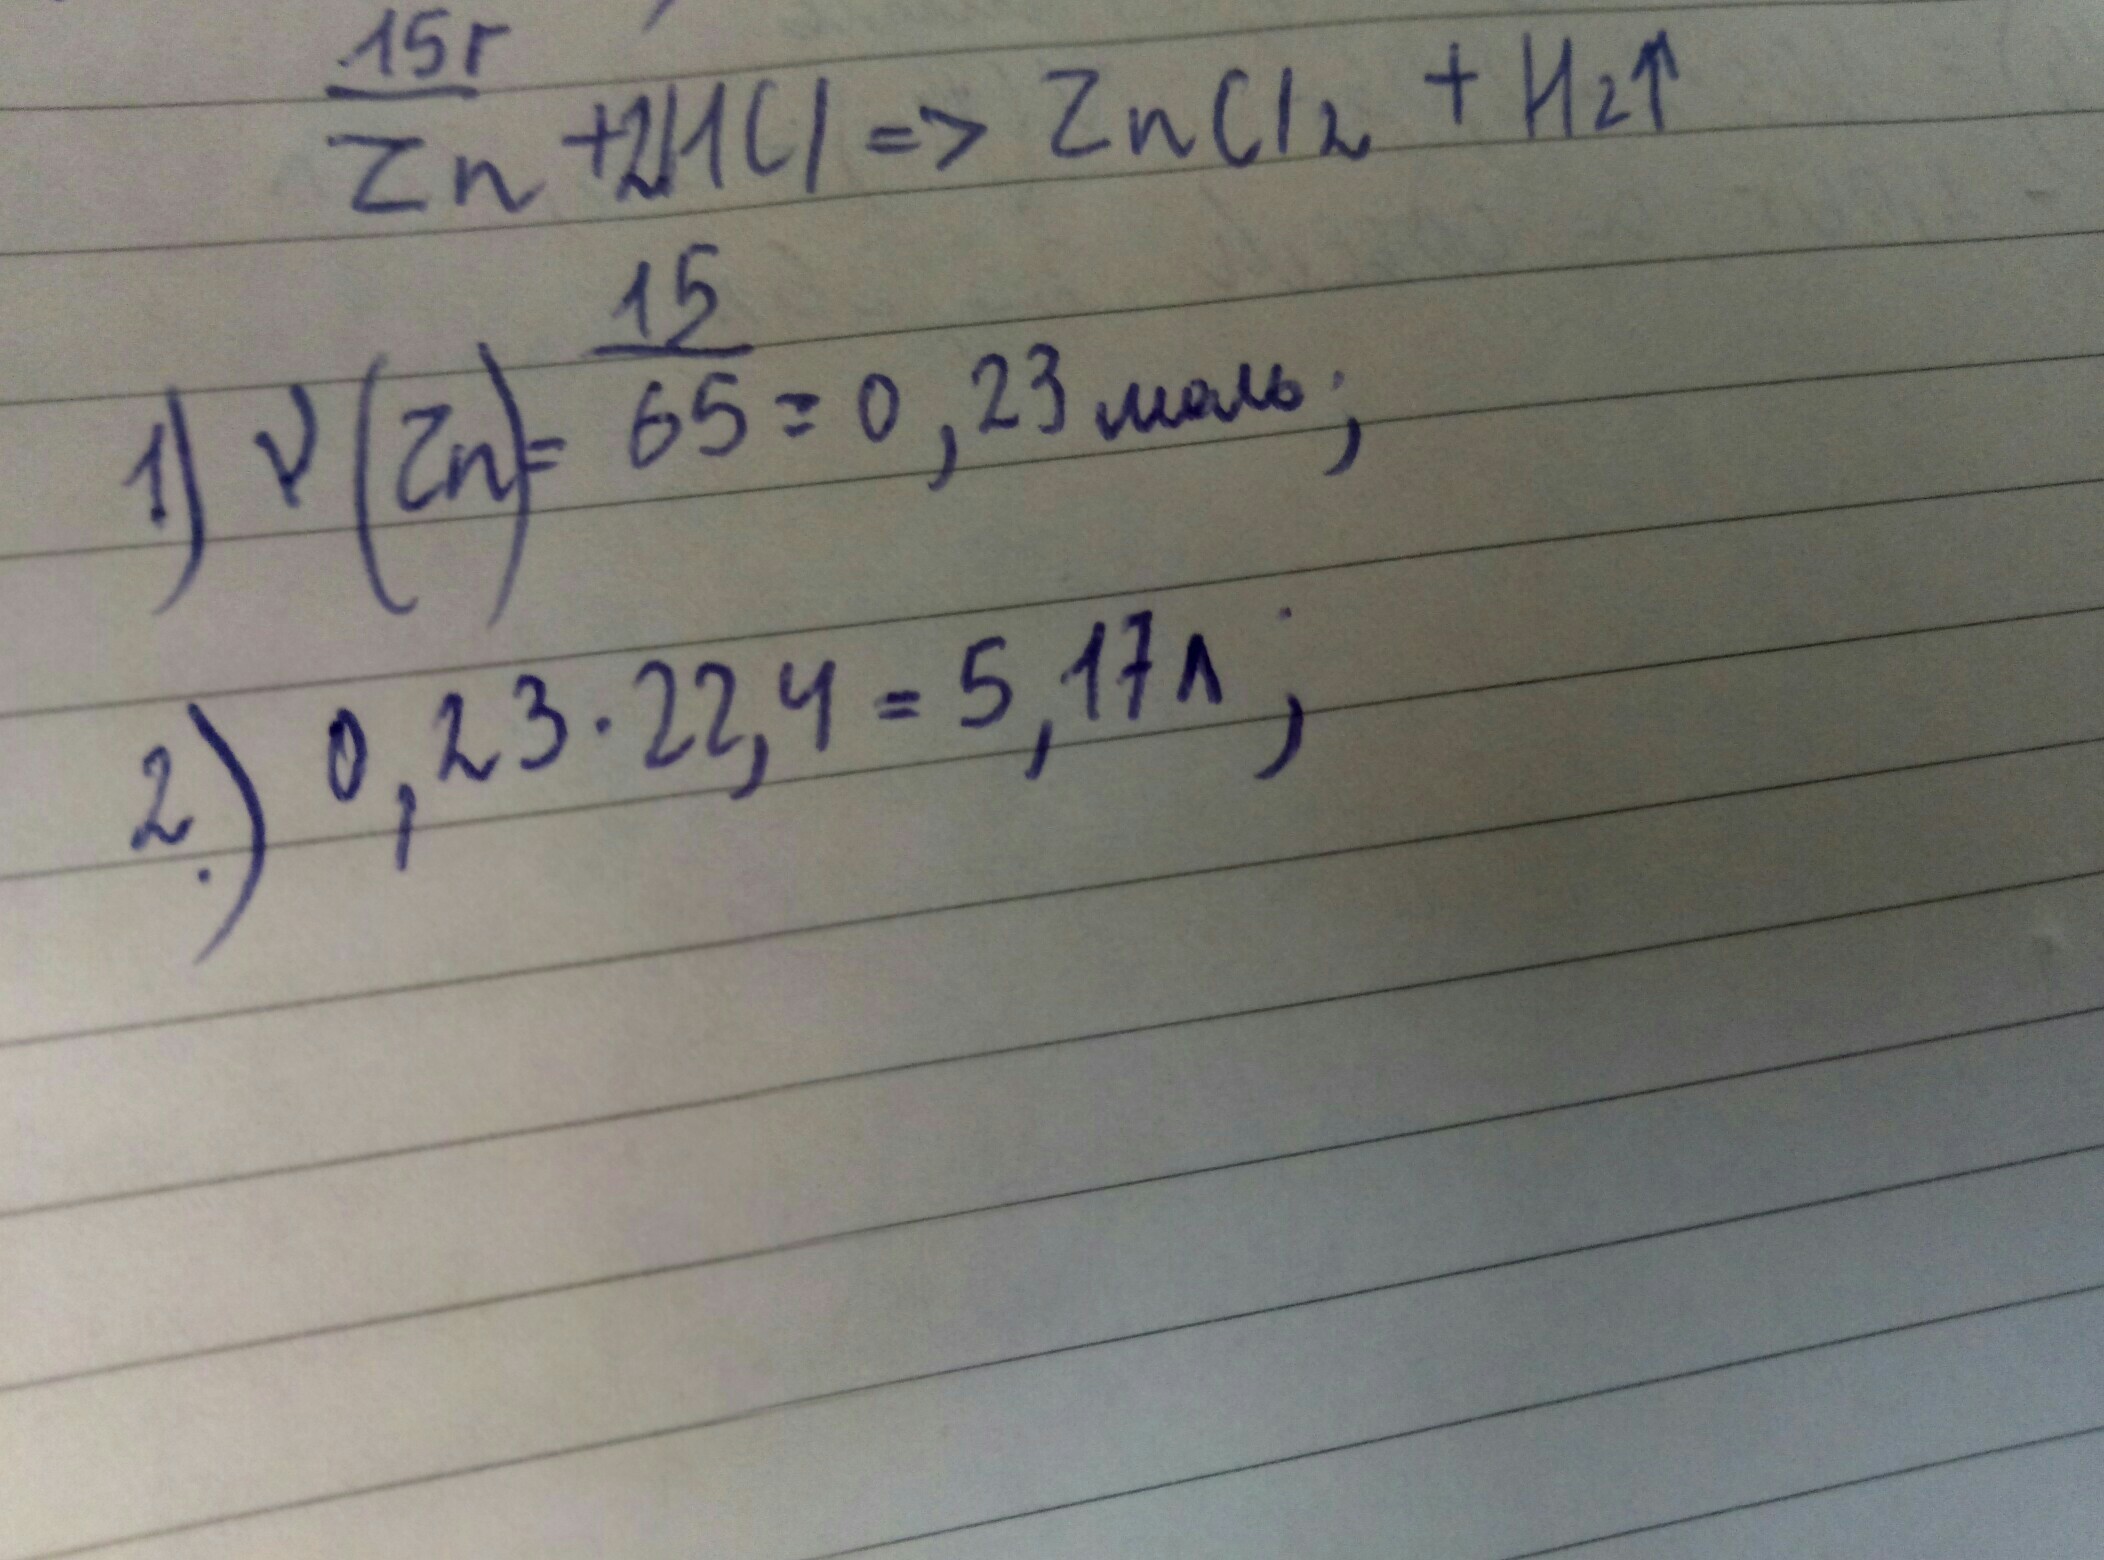 15г
Zn + 2HCl => ZnCl2 + H2↑
15
1) ν (Zn) = 65 = 0,23 моль;
2.) 0,23 · 22,4 = 5,17 л;